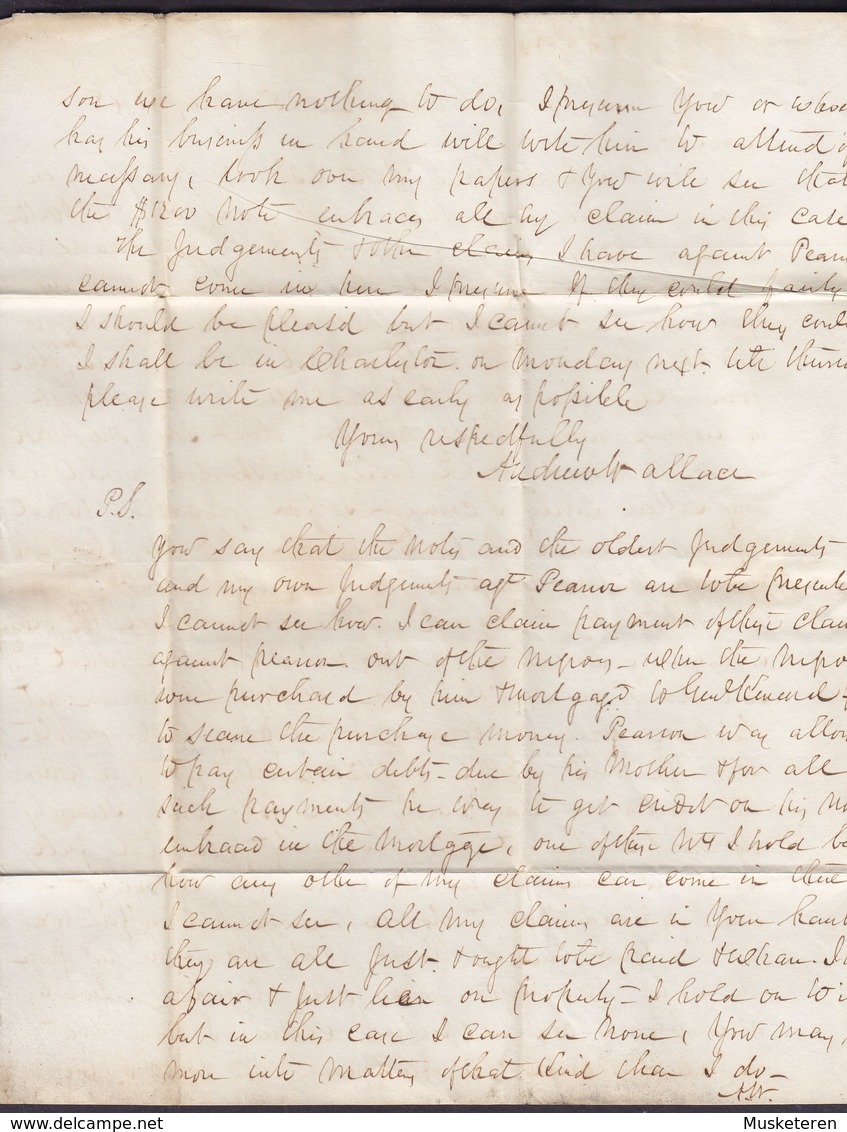 son we have nothing to do, I presume You or who
has his business in hand will write him to attend
necessary, look over my papers & You will see that
the $1200 Note embraces all my claim in this case
The Judgements & other claims I have against Pearson
cannot come in here I presume If they could fairly
I should be pleas'd but I cannot see how they could
I shall be in Charleston on Monday next. till then
please write me as early as possible
Yours respectfully
Andrew Wallace
P.S.
You say that the Notes and the oldest Judgements
and my own Judgements agt Pearson are to be presented
I cannot see how. I can claim payment of these claims
against pearson out of the negroes - when the negroes
were purchased by him & mortgag'd to Genl
to secure the purchase money. Pearson was allowed
to pay certain debts - due by his Mother & for all
such payments he was to get credit on his No
embraced in the Mortgage, one of these Nts I hold b
how any other of my claims can come in there
I cannot see, all my claims are in Your hands
they are all Just & ought to be paid & when I
a fair & Just lien on property - I hold on to i
but in this case I can see None, You may
more into Matters of that kind than I do -
AW.
Musketeren delcampe.net